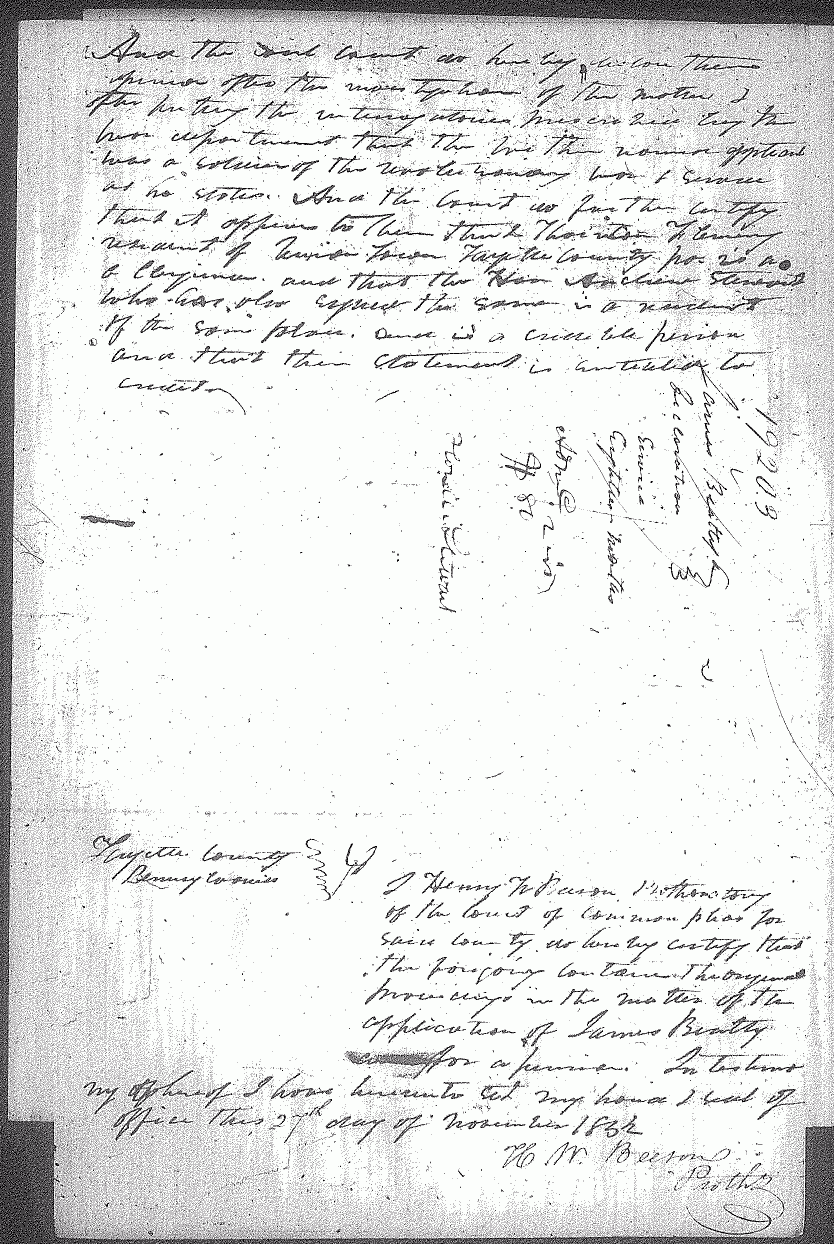 And the said Court do hereby declare their
opinion after the investigation of the matter &
after putting the interogatories prescribed by the
war department that the above named applicant
was a soldier of the revolutionary war & served
as he states. And the Court do further certify
that it appears to them that Thornton Fleming
resident of Union Town Fayette County pa is a
a Clergiman and that the Hon Andrew Stewart
who has also signed the same is a resident
of the same place. and is a credible person
and that their statement is entitled to
credit
19203
James Beatty
Declaration
Service
Eighteen Months
Hon
$ 80
Andrew Stewart
Fayette County
Pennsylvania
I Henry W Beeson Prothonotary
of the Court of Common pleas for
said County do hereby certify that
the forgoing contains the original
proceedings in the matter of the
application of James Beatty
for a pension. In testimo
ny whereof I have hereunto set my hand & seal of
office this 27th day of November 1832
H. W. Beeson
Prothy